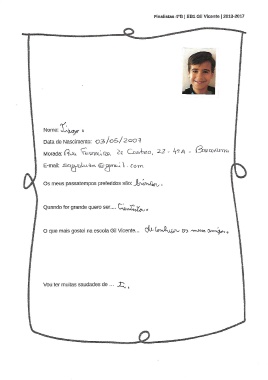 Finalistas 4ºB | EB1 Gil Vicente | 2013-2017
Nome: Tiago.
Data de Nascimento: 03/05/2007
Morada: Rua Ferreira de Castro, 22 - 4º A - Barreiro
E-mail: @gmail.com
Os meus passatempos preferidos são: brincar.
Quando for grande quero ser... cientista.
O que mais gostei na escola Gil Vicente... de conhecer os meus amigos.
Vou ter muitas saudades de ...